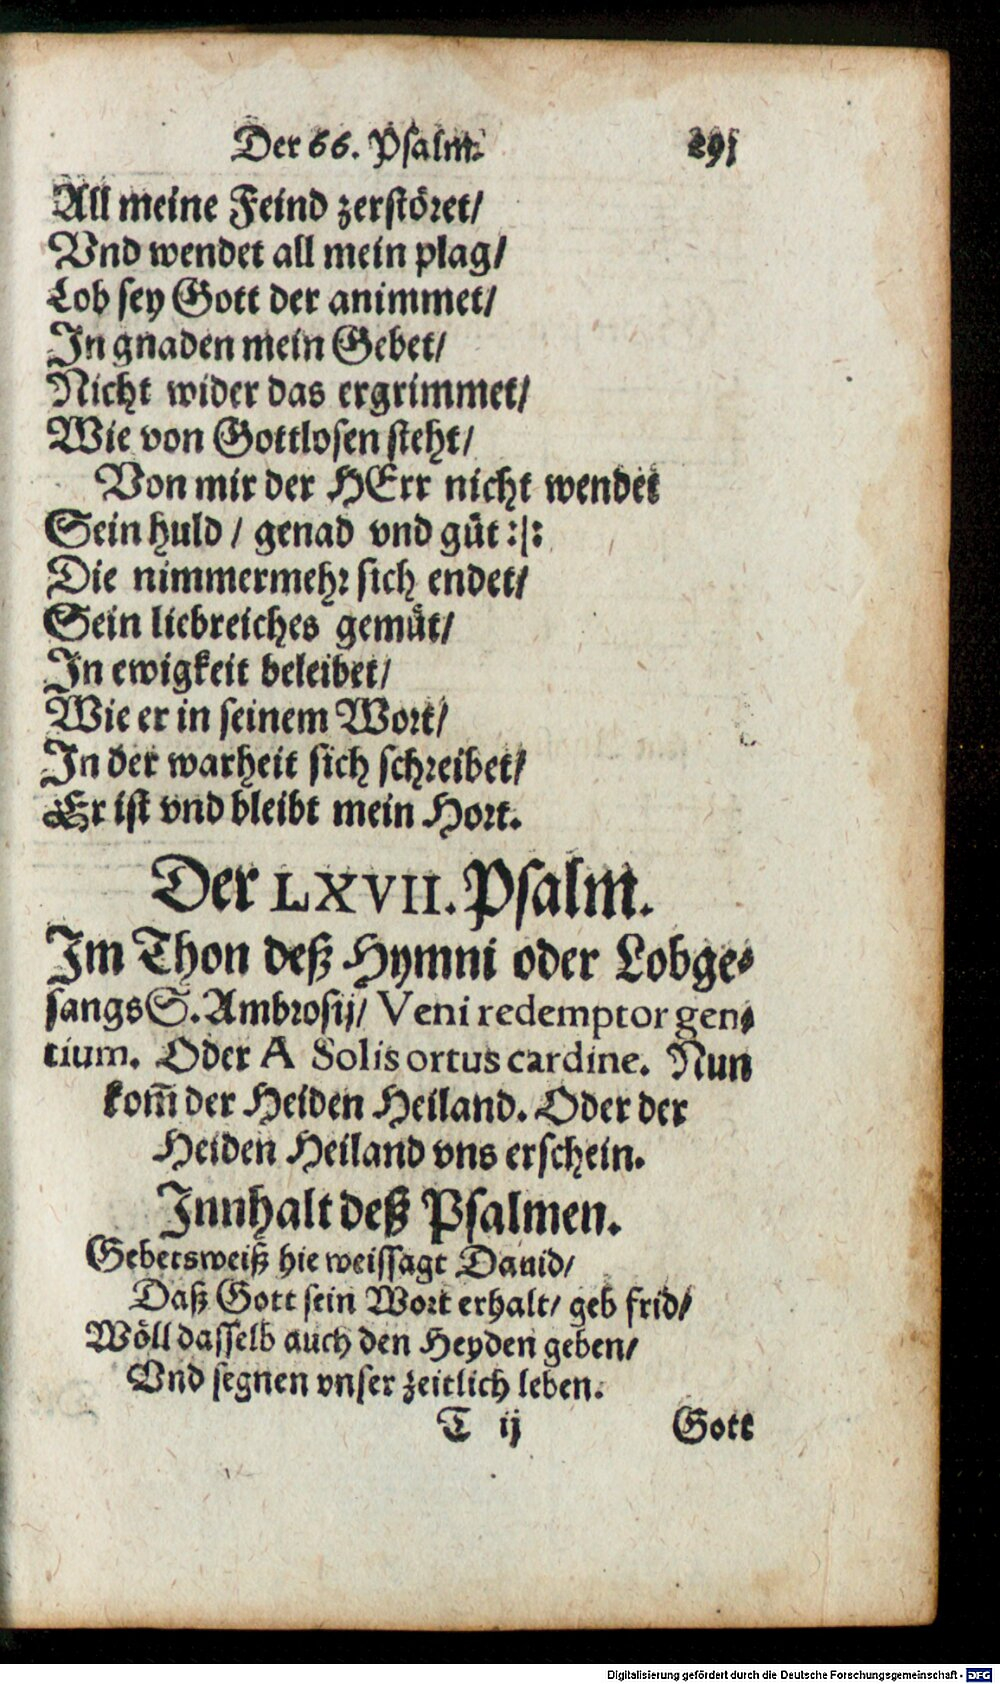 Der 66. Psalm. 291
All meine Feind zerstöret/
Vnd wendet all mein plag/
Lob sey Gott der animmet/
In gnaden mein Gebet/
Nicht wider das ergrimmet/
Wie von Gottlosen steht/
Von mir der HErr nicht wendet
Sein huld / genad vnd güt :|:
Die nimmermehr sich endet/
Sein liebreiches gemüt/
In ewigkeit beleibet/
Wie er in seinem Wort/
In der warheit sich schreibet/
Er ist vnd bleibt mein Hort.
Der LXVII. Psalm.
Im Thon deß Hymni oder Lobge-
sangs S. Ambrosij/ Veni redemptor gen-
tium. Oder A Solis ortus cardine. Nun
kom̄ der Heiden Heiland. Oder der
Heiden Heiland vns erschein.
Innhalt deß Psalmen.
Gebetsweiß hie weissagt Dauid/
Daß Gott sein Wort erhalt/ geb frid/
Wöll dasselb auch den Heyden geben/
Vnd segnen vnser zeitlich leben.
T ij Gott
Digitalisierung gefördert durch die Deutsche Forschungsgemeinschaft - DFG